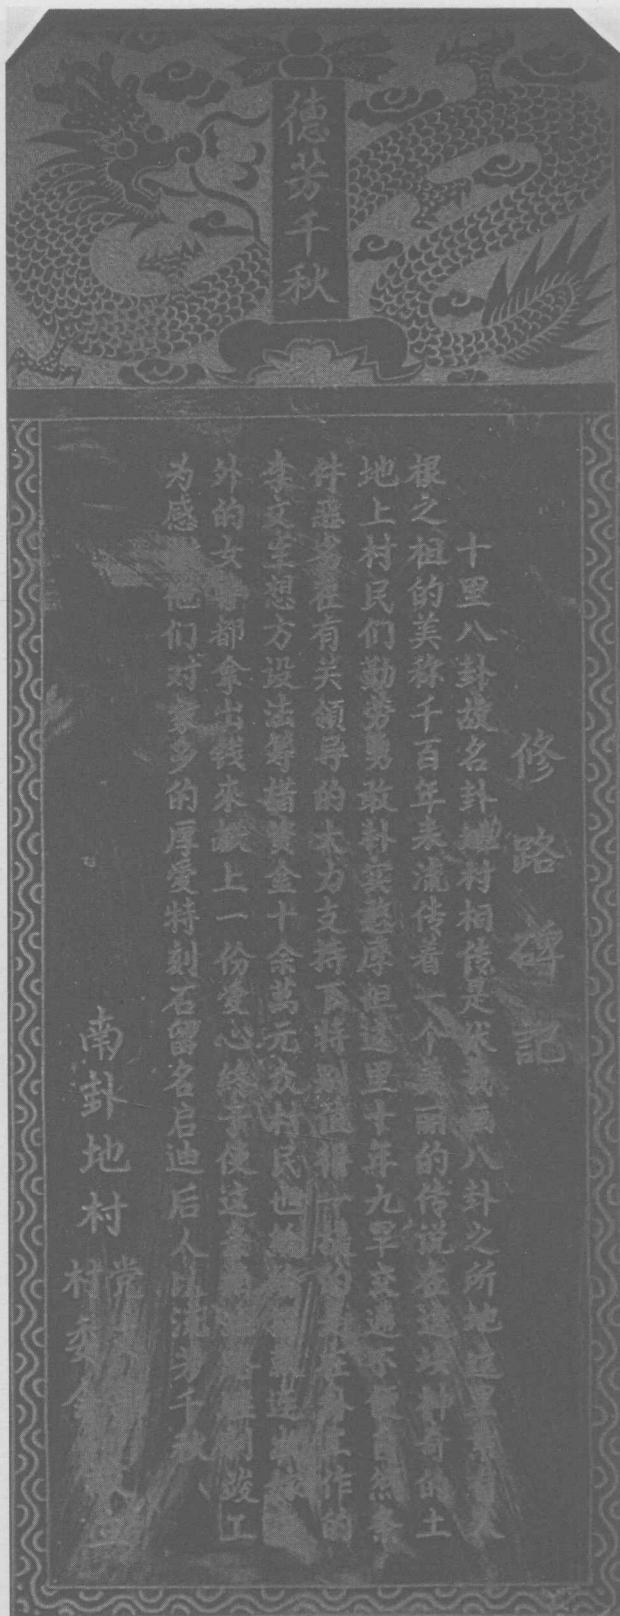 德芳千秋
修路碑記
十里八卦故名卦地村相传是伏羲画八卦之所地这里素有人
根之祖的美称千百年来流传着一个美丽的传说在这块神奇的土
地上村民们勤劳勇敢朴实憨厚但这里十年九旱交通不便自然条
件恶劣在有关领导的大力支持下特别值得一提的是在外工作的
李文 想方设法筹措资金十余萬元 村民也
外的女 都拿出钱来献上一份爱心终于使这条 竣工
为感 他们对家乡的厚爱特刻石留名启迪后人以流芳千秋
南卦地村
党
村委会 立